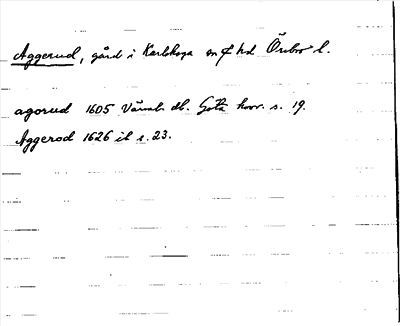 Aggerud, gård i Karlskoga sn o hd Örebro l.
agorud 1605 Värml. db. Götal. hovr. s. 19.
Aggerod 1626 ib s. 23.